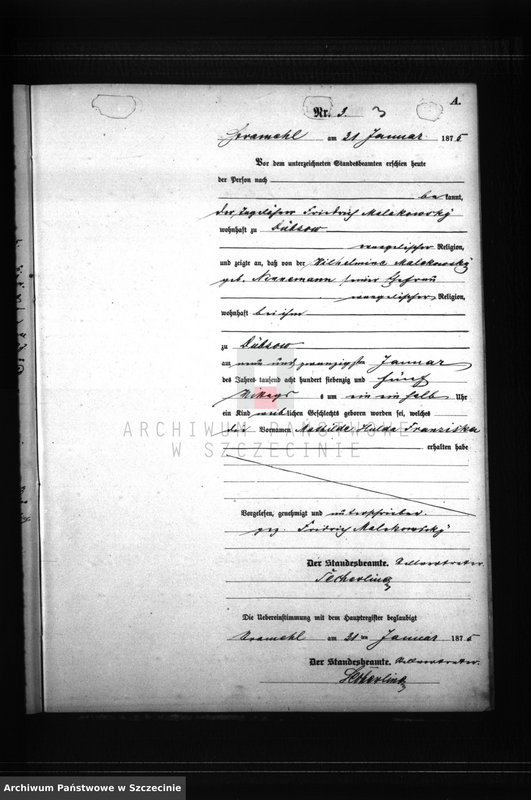 A.
Nr. 3. 3
am 21 Januar 1875
Vor dem unterzeichneten Standesbeamten erschien heute
der Person nach
be kannt,
der Tagelöhner Friedrich Malakowsky
wohnhaft zu Dübsow
evangelischer Religion,
und zeigte an, daß von der Wilhelmine Malakowsky
geb. seiner Ehefrau
evangelischer Religion,
wohnhaft bei ihm
zu Dübsow
am Januar
des Jahres tausend acht hundert siebenzig und fünf
um ein ein halb Uhr
ein Kind weiblichen Geschlechts geboren worden sei, welches
die Vornamen Mathilde Hulda Franziska
erhalten habe
ARCHIWUM PAŃSTWOWE
W SZCZECINIE
Vorgelesen, genehmigt und unterschrieben
gez. Friedrich Malakowsky
Der Standesbeamte. Stellvertreter.
Die Uebereinstimmung mit dem Hauptregister beglaubigt
am 21ten Januar 1875
Der Standesbeamte. Stellvertreter.
Archiwum Państwowe w Szczecinie